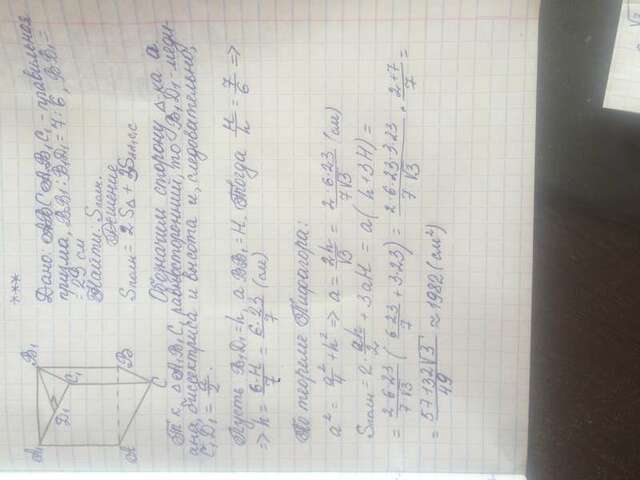 ***
A₁ B₁
D₁ C₁
A B
C
Дано: ABCA₁B₁C₁ - правильная
призма, BB₁ : B₁D₁ = 7 : 6, BB₁ =
= 23 см
Найти: Sполн.
Решение
Sполн = 2S△ + 3SAA₁C₁C
Обозначим сторону △-ка a
Т. к. △A₁B₁C₁ равносторонний, то B₁D₁ - меди-
ана, биссектриса и высота и, следовательно,
C₁D₁ = a/2.
Пусть B₁D₁ = h, а BB₁ = H. Тогда H/h = 7/6 =>
=> h = 6·H/7 = 6·23/7 (см)
По теореме Пифагора:
a² = a²/4 + h² => a = 2h/√3 = 2·6·23/7√3 (см)
Sполн = 2·ah/2 + 3aH = a(h + 3H) =
= 2·6·23/7√3 (6·23/7 + 3·23) = 2·6·23·3·23/7√3 · 2+7/7 =
= 57132√3/49 ≈ 1982 (см²)